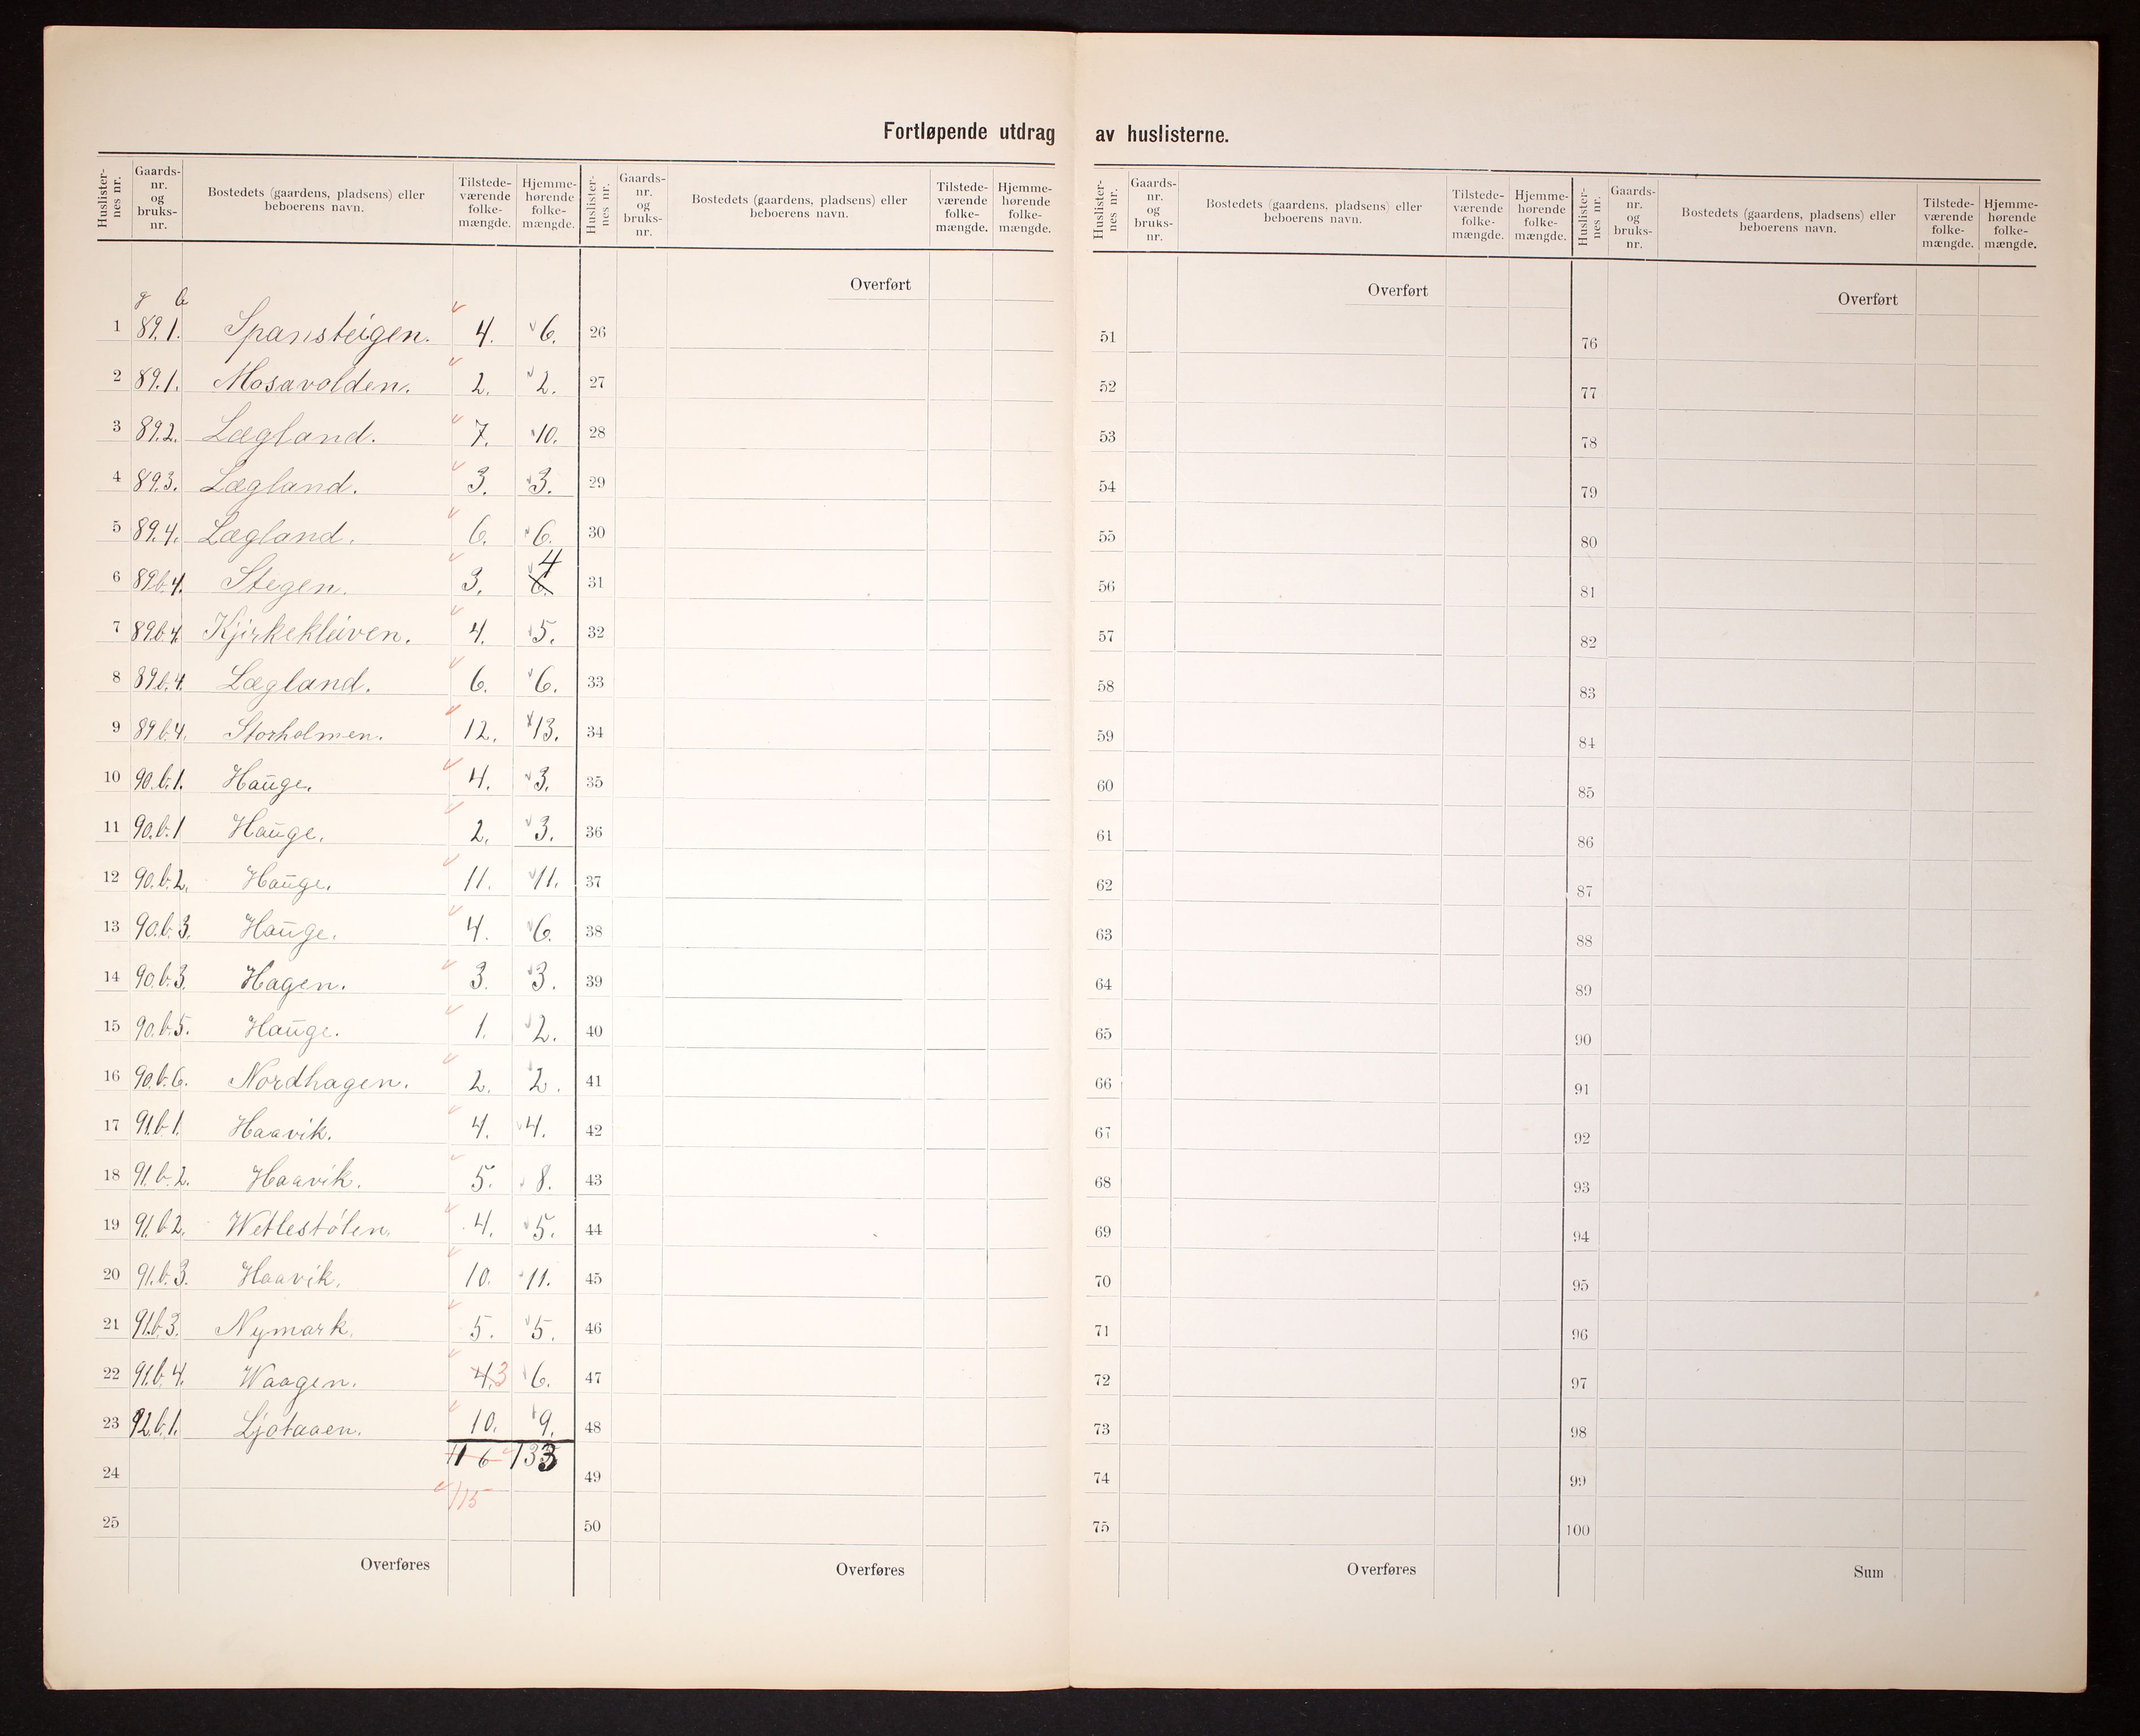 Fortløpende utdrag av huslisterne.
Huslisternes nr. Gaardsnr. og bruksnr. Bostedets (gaardens, pladsens) eller beboerens navn. Tilstedeværende folkemængde. Hjemmehørende folkemængde. Huslisternes nr. Gaardsnr. og bruksnr. Bostedets (gaardens, pladsens) eller beboerens navn. Tilstedeværende folkemængde. Hjemmehørende folkemængde. Huslisternes nr. Gaardsnr. og bruksnr. Bostedets (gaardens, pladsens) eller beboerens navn. Tilstedeværende folkemængde. Hjemmehørende folkemængde. Huslisternes nr. Gaardsnr. og bruksnr. Bostedets (gaardens, pladsens) eller beboerens navn. Tilstedeværende folkemængde. Hjemmehørende folkemængde.
Overført Overført Overført
g b
1 89.1. Spansteigen. 4. 6. 26 51 76
2 89.1. Mosavolden. 2. 2. 27 52 77
3 89.2. Lægland. 7. 10. 28 53 78
4 89.3. Lægland. 3. 3. 29 54 79
5 89.4. Lægland. 6. 6. 30 55 80
6 89.b.4. Stegen. 3. 6. 4 31 56 81
7 89.b.4. Kjirkekleiven. 4. 5. 32 57 82
8 89.b.4. Lægland. 6. 6. 33 58 83
9 89.b.4. Storholmen. 12. 13. 34 59 84
10 90.b.1. Hauge. 4. 3. 35 60 85
11 90.b.1 Hauge. 2. 3. 36 61 86
12 90.b.2. Hauge. 11. 11. 37 62 87
13 90.b.3. Hauge. 4. 6. 38 63 88
14 90.b.3. Hagen. 3. 3. 39 64 89
15 90.b.5. Hauge. 1. 2. 40 65 90
16 90.b.6. Nordhagen. 2. 2. 41 66 91
17 91.b.1. Haavik. 4. 4. 42 67 92
18 91.b.2. Haavik. 5. 8. 43 68 93
19 91.b.2. Wetlestølen. 4. 5. 44 69 94
20 91.b.3. Haavik. 10. 11. 45 70 95
21 91.b.3. Nymark. 5. 5. 46 71 96
22 91.b.4. Waagen. 4. 3 6. 47 72 97
23 92.b.1. Ljotaaen. 10. 9. 48 73 98
24 116 133 49 74 99
115
25 50 75 100
Overføres Overføres Overføres Sum